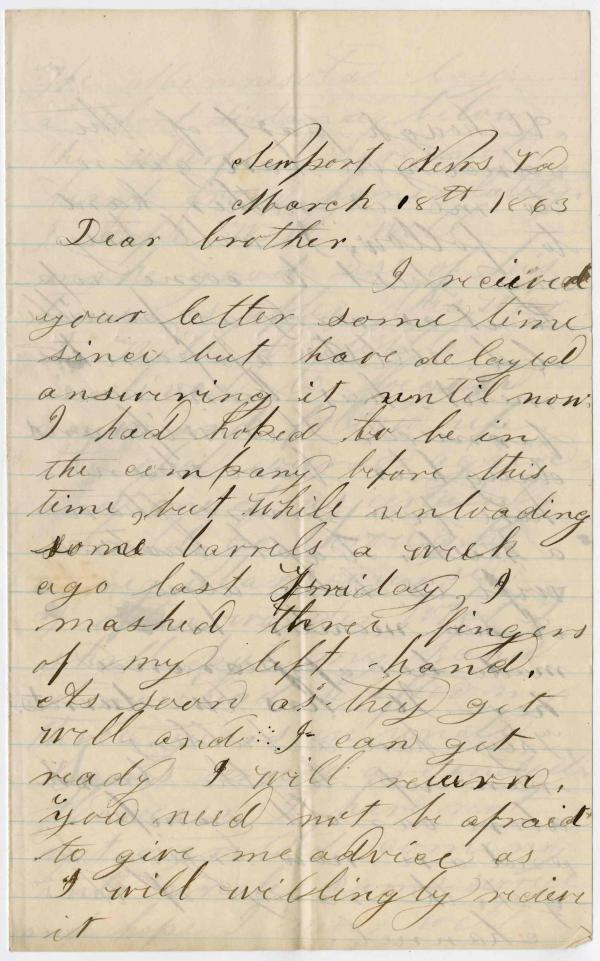 Newport News Va
March 18th 1863
Dear brother
I recieved
your letter some time
since but have delayed
answering it until now.
I had hoped to be in
the company before this
time, but while unloading
some barrels a week
ago last Friday, I
mashed three fingers
of my left hand.
As soon as they get
well and I can get
ready I will return,
you need not be afraid
to give me advice as
I will willingly recieve
it